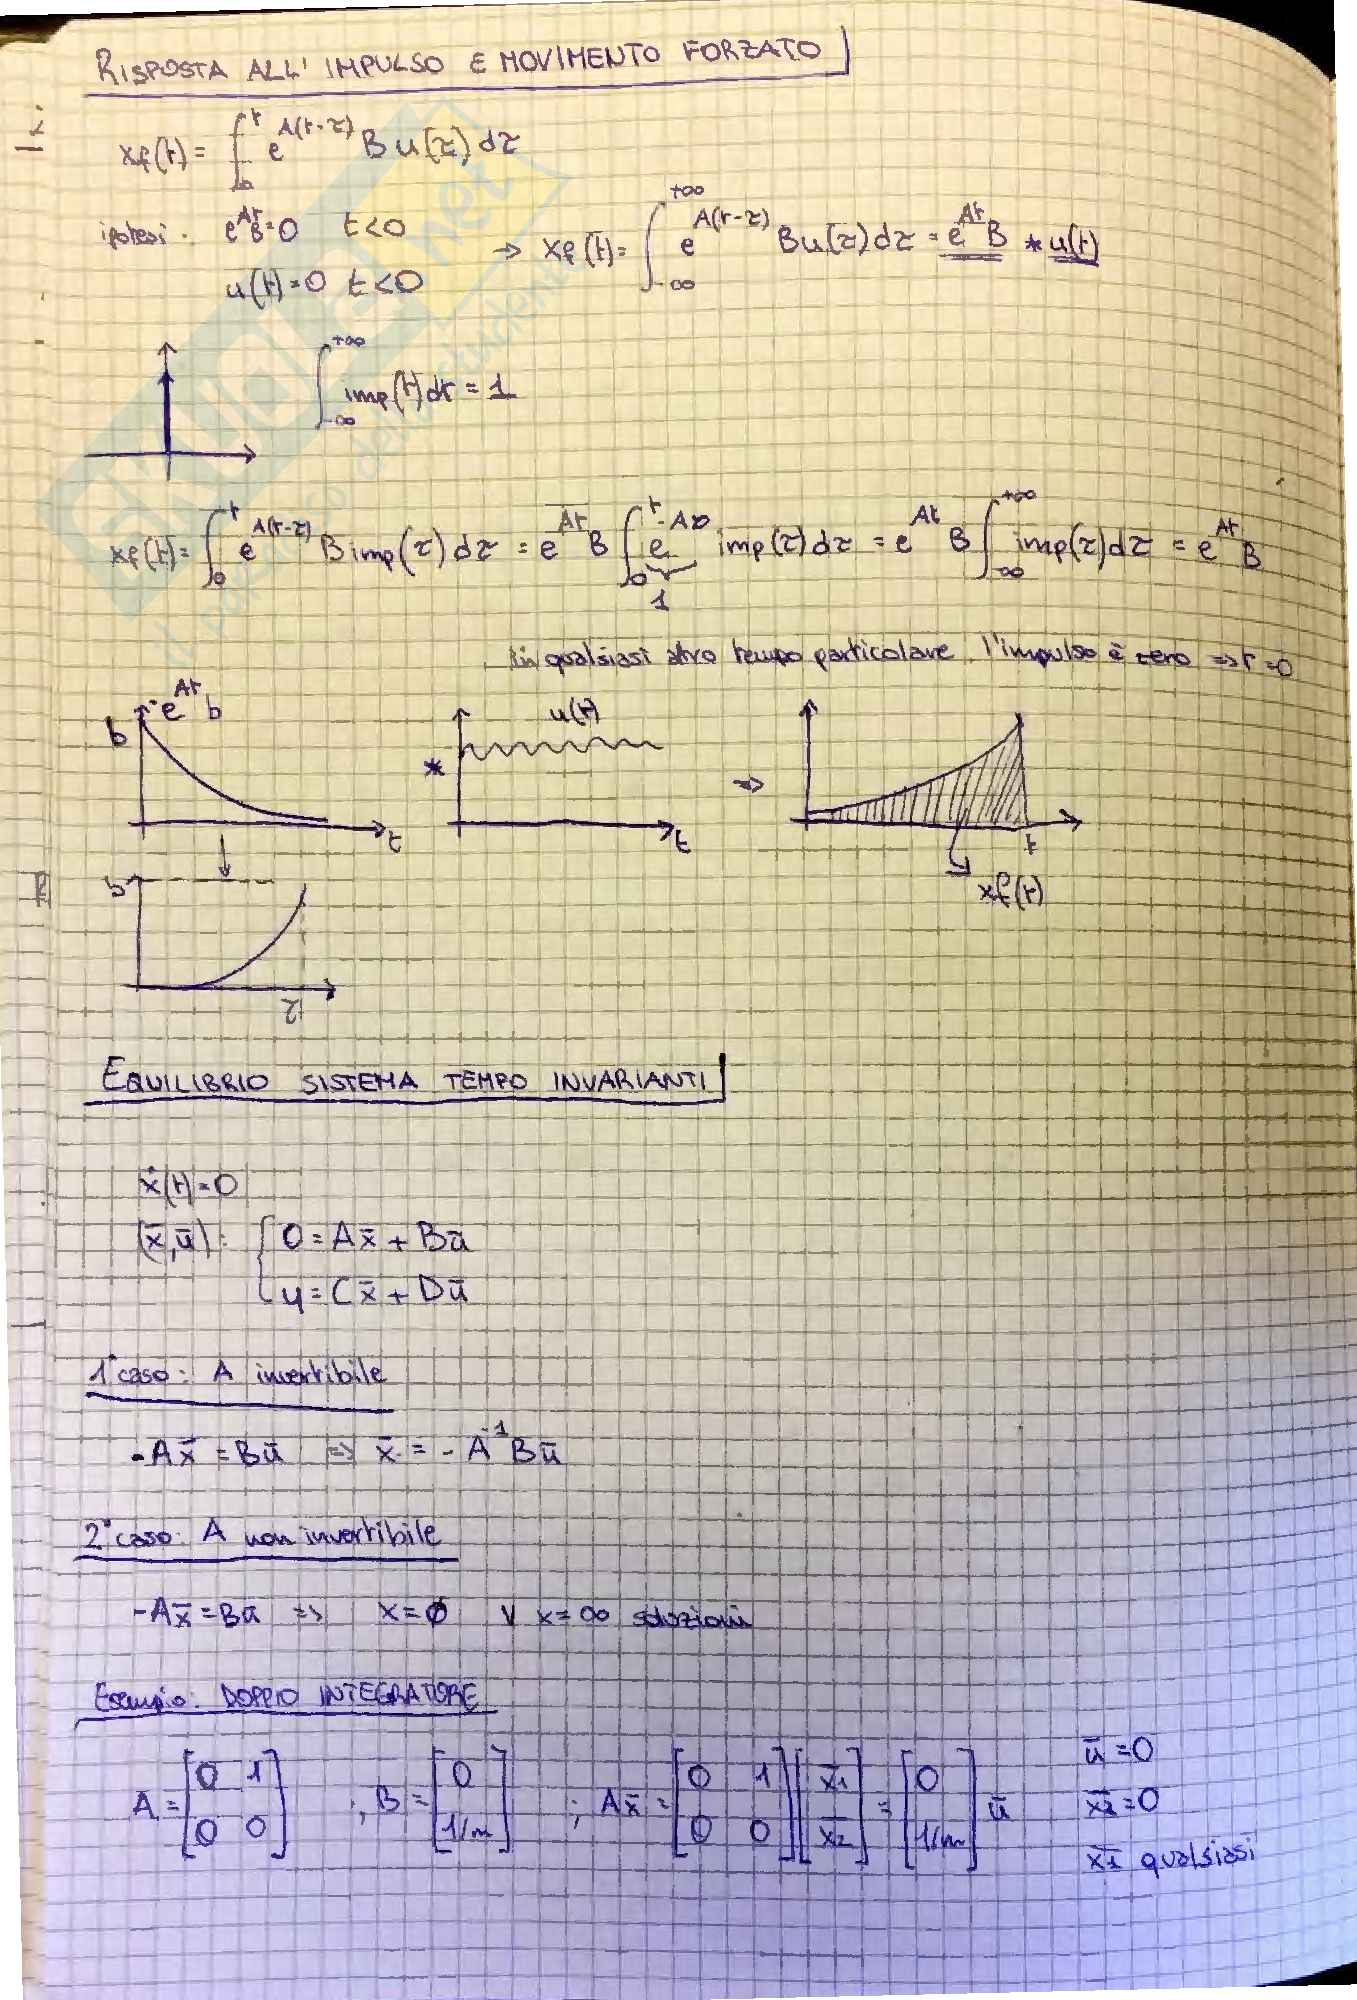 RISPOSTA ALL'IMPULSO E MOVIMENTO FORZATO
xf(t) = ∫₀ᵗ e^{A(t-τ)} B u(τ) dτ
ipotesi: e^{At}B=0 t<0
u(t)=0 t<0
=> xf(t) = ∫_{-∞}^{+∞} e^{A(t-τ)} B u(τ) dτ = e^{At}B * u(t)
∫_{-∞}^{+∞} imp(t) dt = 1
xf(t) = ∫₀ᵗ e^{A(t-τ)} B imp(τ) dτ = e^{At} B ∫₀ᵗ e^{-A0} imp(τ) dτ = e^{At} B ∫_{-∞}^{+∞} imp(τ) dτ = e^{At} B
1
in qualsiasi altro tempo particolare l'impulso è zero => t=0
e^{At} b
b
t
*
u(t)
t
=>
t
xf(t)
b
τ
EQUILIBRIO SISTEMA TEMPO INVARIANTI
ẋ(t)=0
(x̄,ū): { 0=Ax̄ + Bū
y=Cx̄ + Dū
1° caso: A invertibile
-Ax̄ = Bū => x̄ = -A⁻¹Bū
2° caso: A non invertibile
-Ax̄ = Bū => x=∅ v x=∞ soluzioni
Esempio: DOPPIO INTEGRATORE
A = [0 1; 0 0] ; B = [0; 1/m] ; Ax̄ = [0 1; 0 0] [x̄1; x̄2] = [0; 1/m] ū
ū=0
x̄2=0
x̄1 qualsiasi
SKUOLA.net
il paradiso dello studente